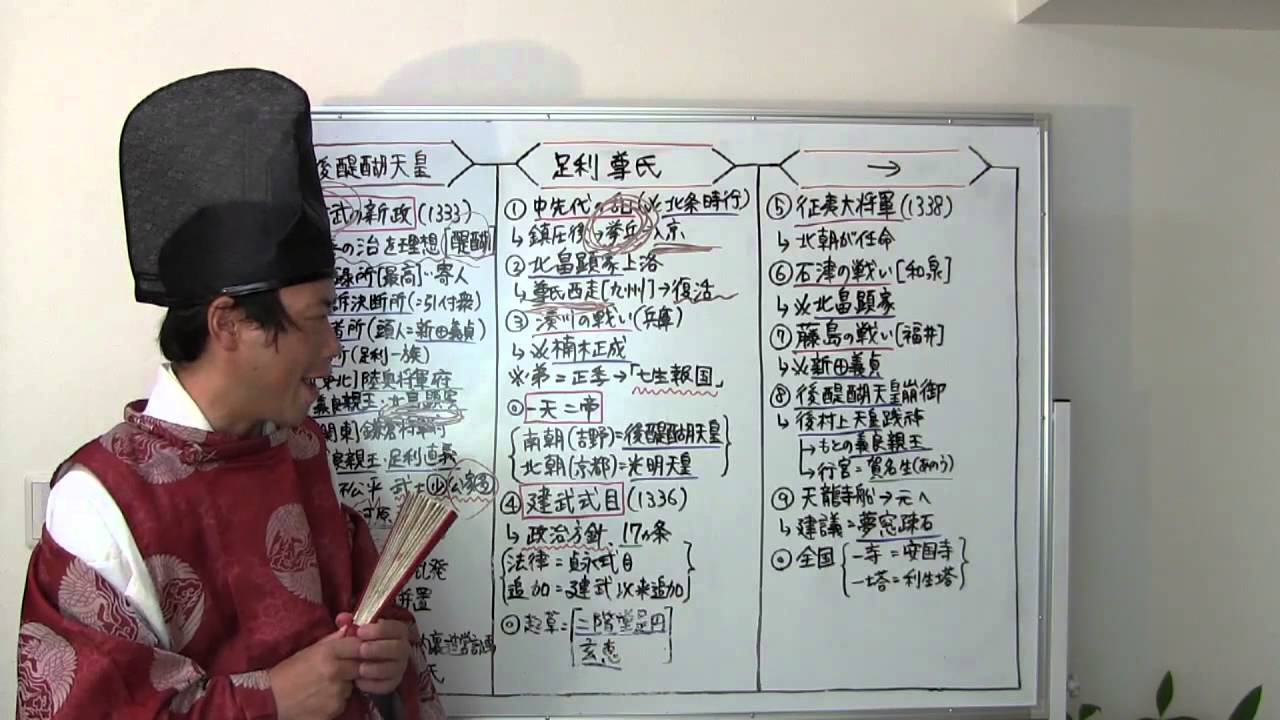 後醍醐天皇
武の新政(1333)
の治を理想[醍醐]
録所[最高]‥寄人
訴決断所(=引付衆)
者所(頭人=新田義貞)
所(足利一族)
東北]陸奥将軍府
義良親王・北畠顕家
関東]鎌倉将軍府
良親王・足利直義
松平
発
併置
内裏造営計画
氏
足利尊氏
① 中先代の乱(※北条時行)
↳鎮圧後→挙兵→入京
② 北畠顕家上洛
↳尊氏西走[九州]→復活
③ 湊川の戦い(兵庫)
↳※楠木正成
※弟=正季→「七生報国」
◎一天二帝
南朝(吉野)=後醍醐天皇
北朝(京都)=光明天皇
④ 建武式目(1336)
↳政治方針、17ヵ条
法律=貞永式目
追加=建武以来追加
◎起草=二階堂是円
玄恵
→
⑤ 征夷大将軍(1338)
↳北朝が任命
⑥ 石津の戦い[和泉]
↳※北畠顕家
⑦ 藤島の戦い[福井]
↳※新田義貞
⑧ 後醍醐天皇崩御
↳後村上天皇践祚
→もとの義良親王
→行宮=賀名生(あのう)
⑨ 天龍寺船→元へ
↳建議=夢窓疎石
◎全国{一寺=安国寺
一塔=利生塔}